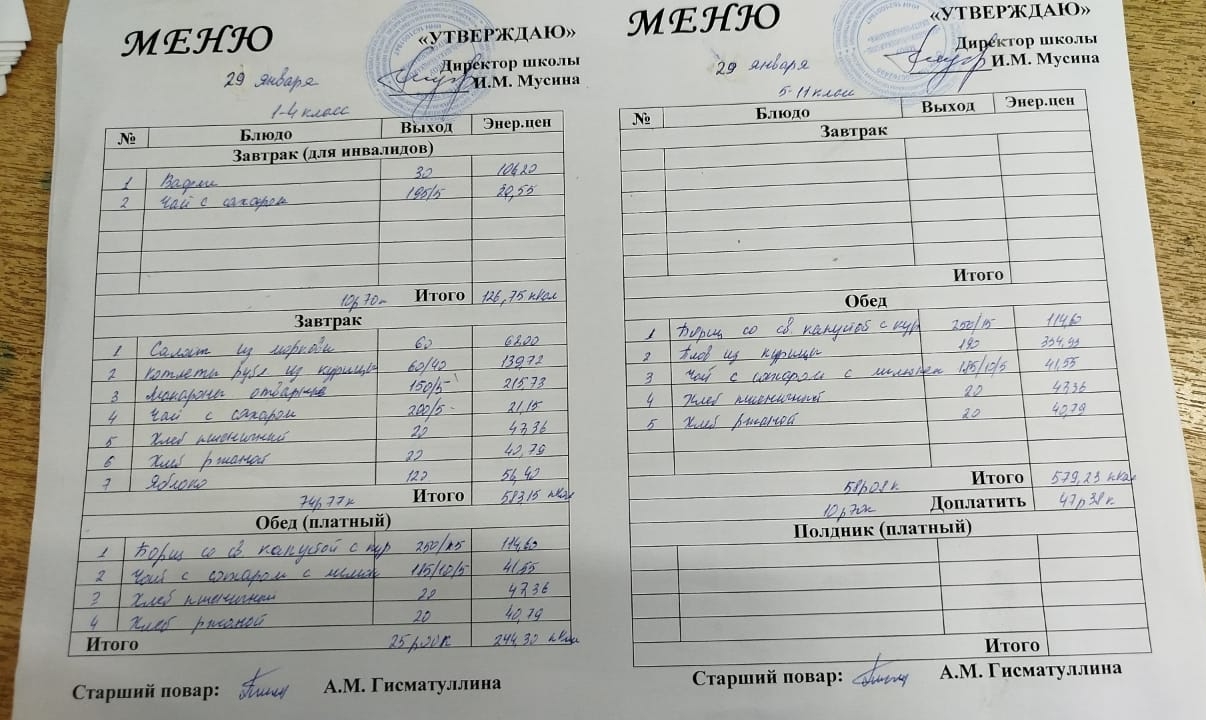 МЕНЮ
«УТВЕРЖДАЮ»
Директор школы
И.М. Мусина
29 января
1-4 класс
№ Блюдо Выход Энер.цен
Завтрак (для инвалидов)
1 Вафли 30 106,20
2 Чай с сахаром 195/5 20,55
10р70к Итого 126,75 ккал
Завтрак
1 Салат из моркови 60 62,00
2 Котлеты рубл из курицы 60/40 139,72
3 Макароны отварные 150/5 215,73
4 Чай с сахаром 200/5 21,15
5 Хлеб пшеничный 20 47,36
6 Хлеб ржаной 20 40,79
7 Яблоко 120 56,40
74р77к Итого 583,15 ккал
Обед (платный)
1 Борщ со св капустой с кур 250/15 114,60
2 Чай с сахаром с молок 185/10/5 41,55
3 Хлеб пшеничный 20 47,36
4 Хлеб ржаной 20 40,79
Итого 25р00к 244,30 ккал
Старший повар: А.М. Гисматуллина
МЕНЮ
«УТВЕРЖДАЮ»
Директор школы
И.М. Мусина
29 января
5-11 класс
№ Блюдо Выход Энер.цен
Завтрак
Итого
Обед
1 Борщ со св капустой с кур 250/15 114,60
2 Плов из курицы 190 334,93
3 Чай с сахаром с молоком 185/10/5 41,55
4 Хлеб пшеничный 20 47,36
5 Хлеб ржаной 20 40,79
58р08к Итого 579,23 ккал
10р70к Доплатить 47р38к
Полдник (платный)
Итого
Старший повар: А.М. Гисматуллина